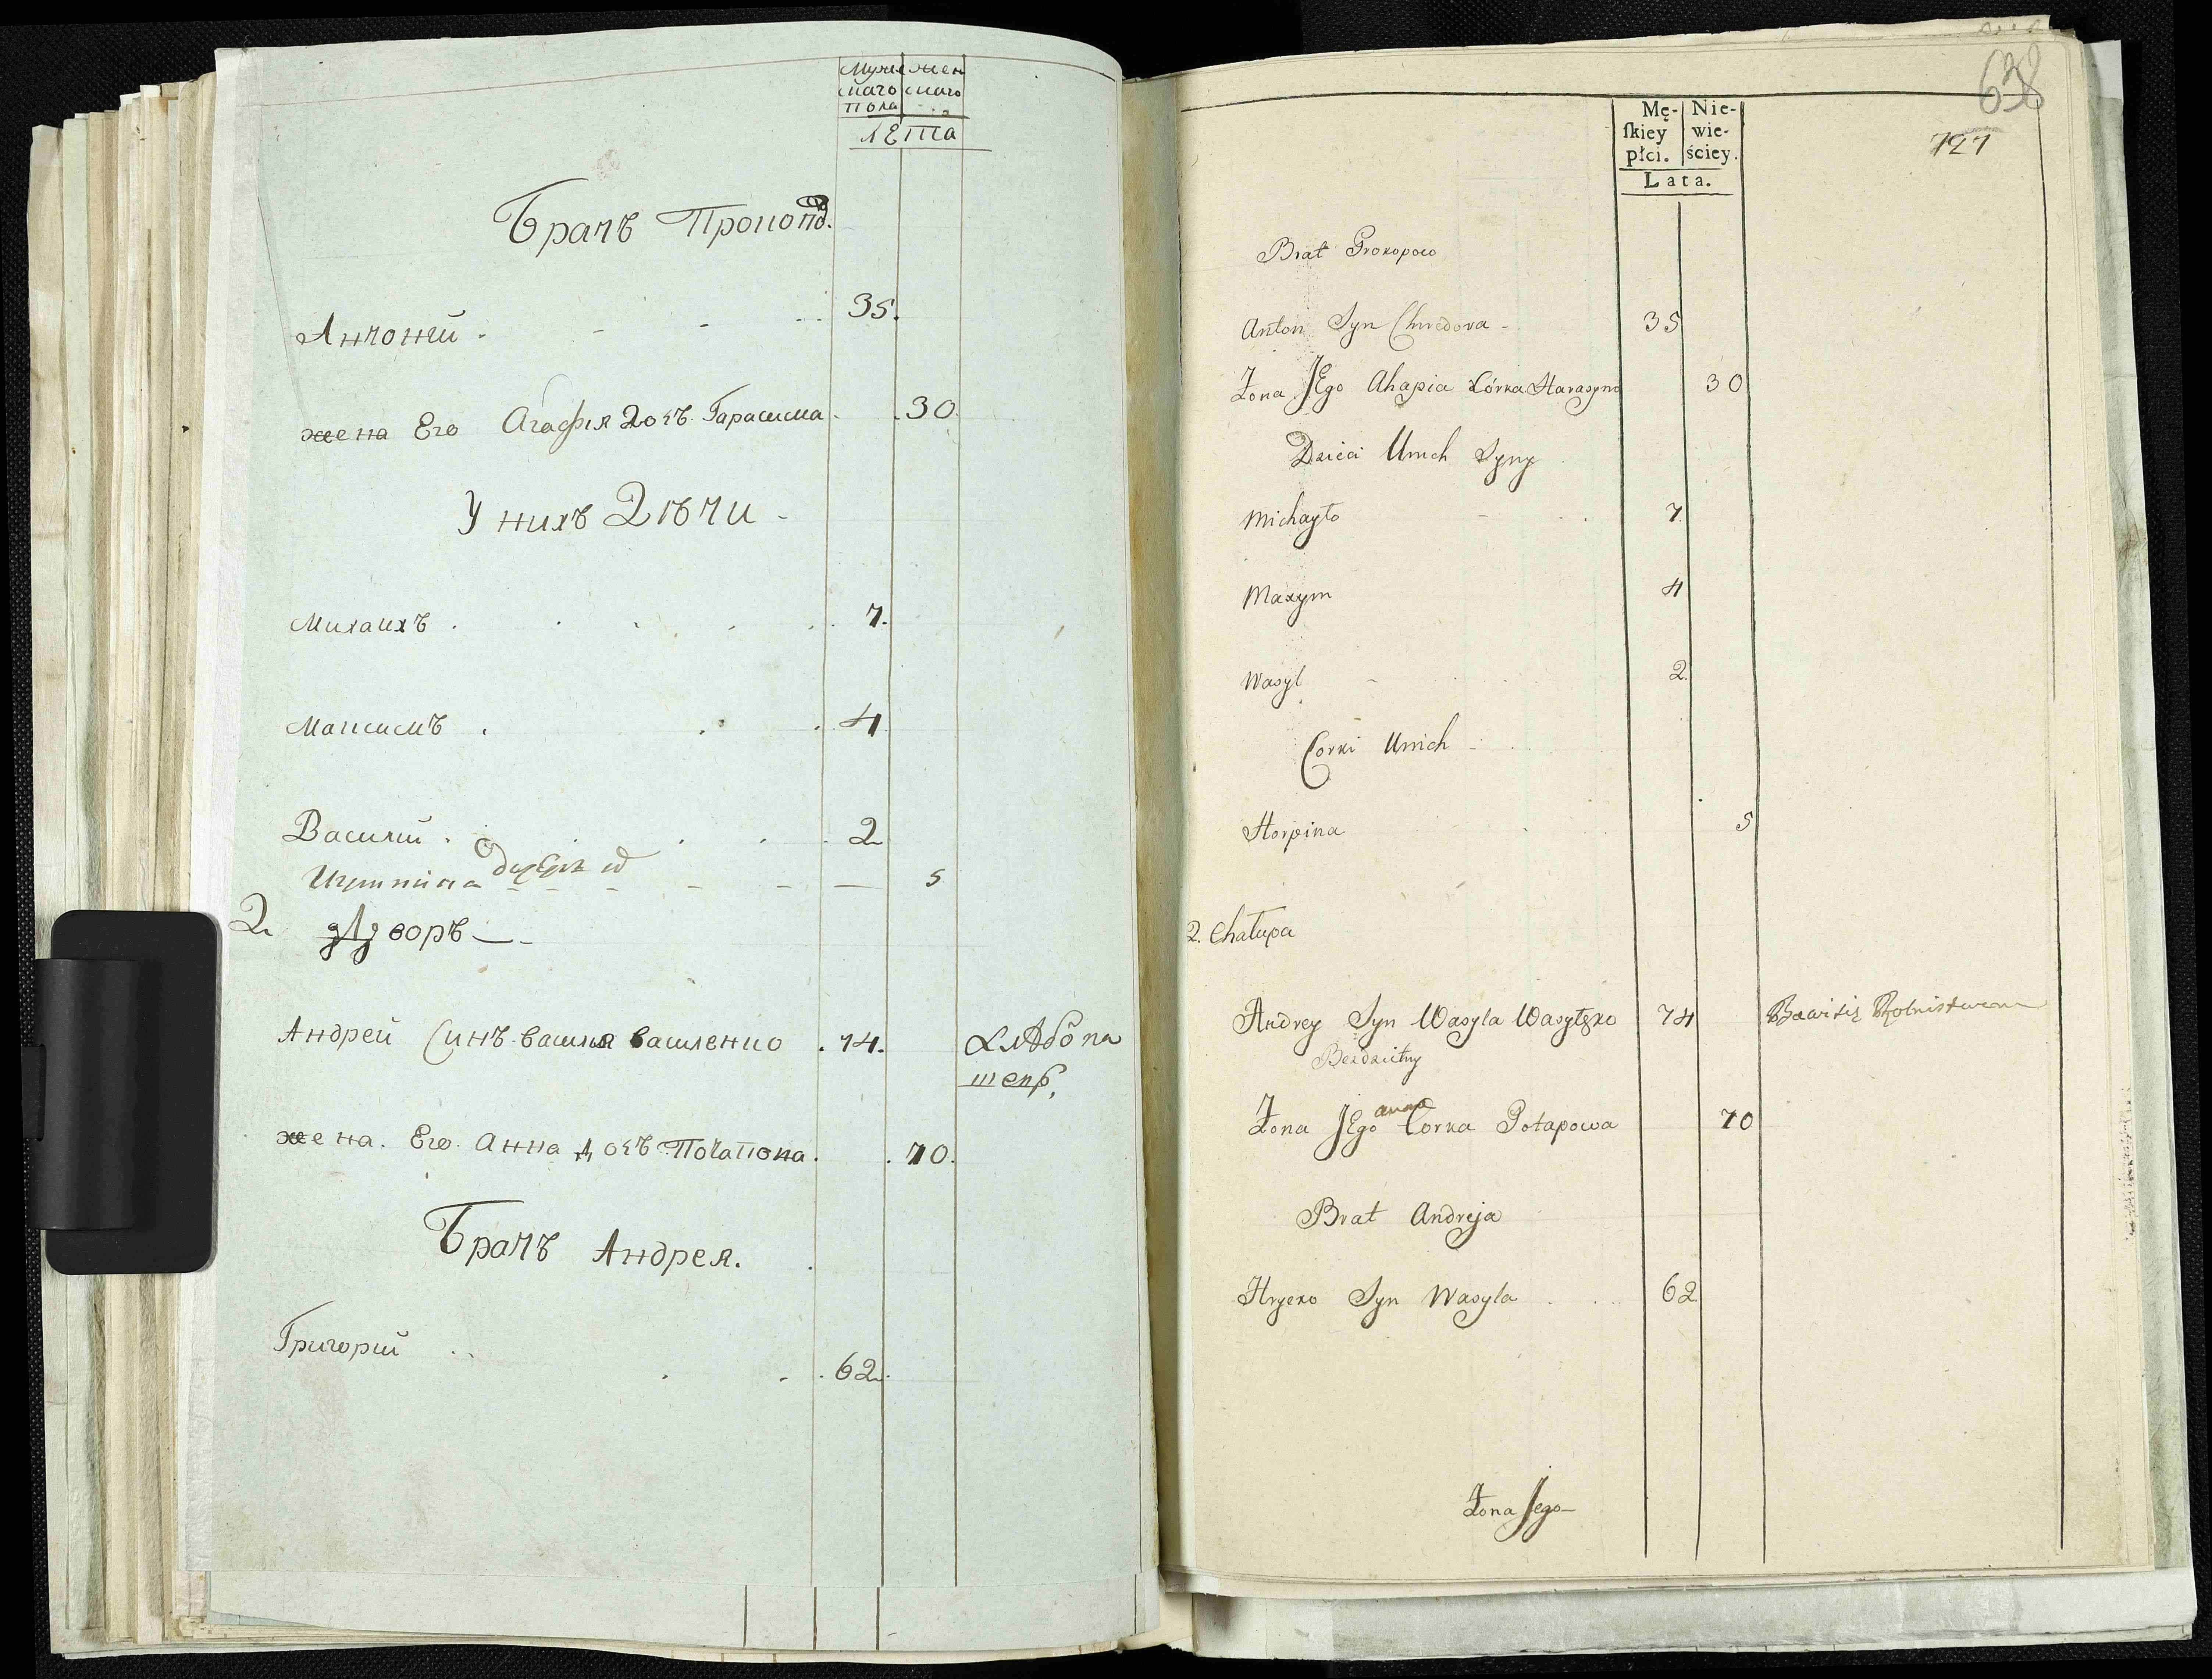 Муже жен
скаго скаго
пола
лета
Братъ Прокопа.
Антоний 35.
жена Его Агафия дочъ Гарасима 30.
У нихъ Дѣти
Михаилъ 7.
Максимъ 4
Василий 2
5
2 дворъ
Андрей Синъ василя василенко 74. хлѣбопа
шец,
жена Его Анна дочъ Потапова 70.
Братъ Андрея.
Григорий
62.
638
727
Mę- Nie-
ſkiey wie-
płci. ściey.
Lata.
Brat Prokopow
Anton Syn Chwedora 35
Żona JEgo Ahapia Córka Harasyma 30
Dzieci Unich Syny
Michayło 7.
Maxym 4
Wasyl 2.
Corki Unich
Horpina 5
2. Chałupa
Andrey Syn Wasyla Wasyłęko 74 Bawi się Rolnistwem
Bezdzietny
Anna
Żona JEgo Corka Potapowa 70
Brat Andreja
Hryćko Syn Wasyla 62.
Żona Jego